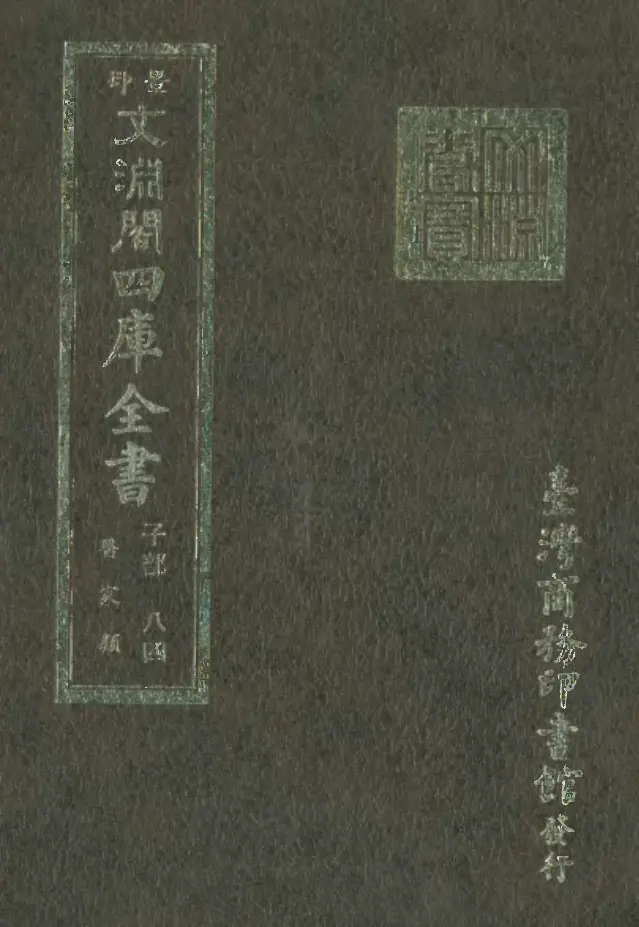 景印
文淵閣四庫全書
子部 八四
醫家類
文淵閣寶
臺灣商務印書館發行